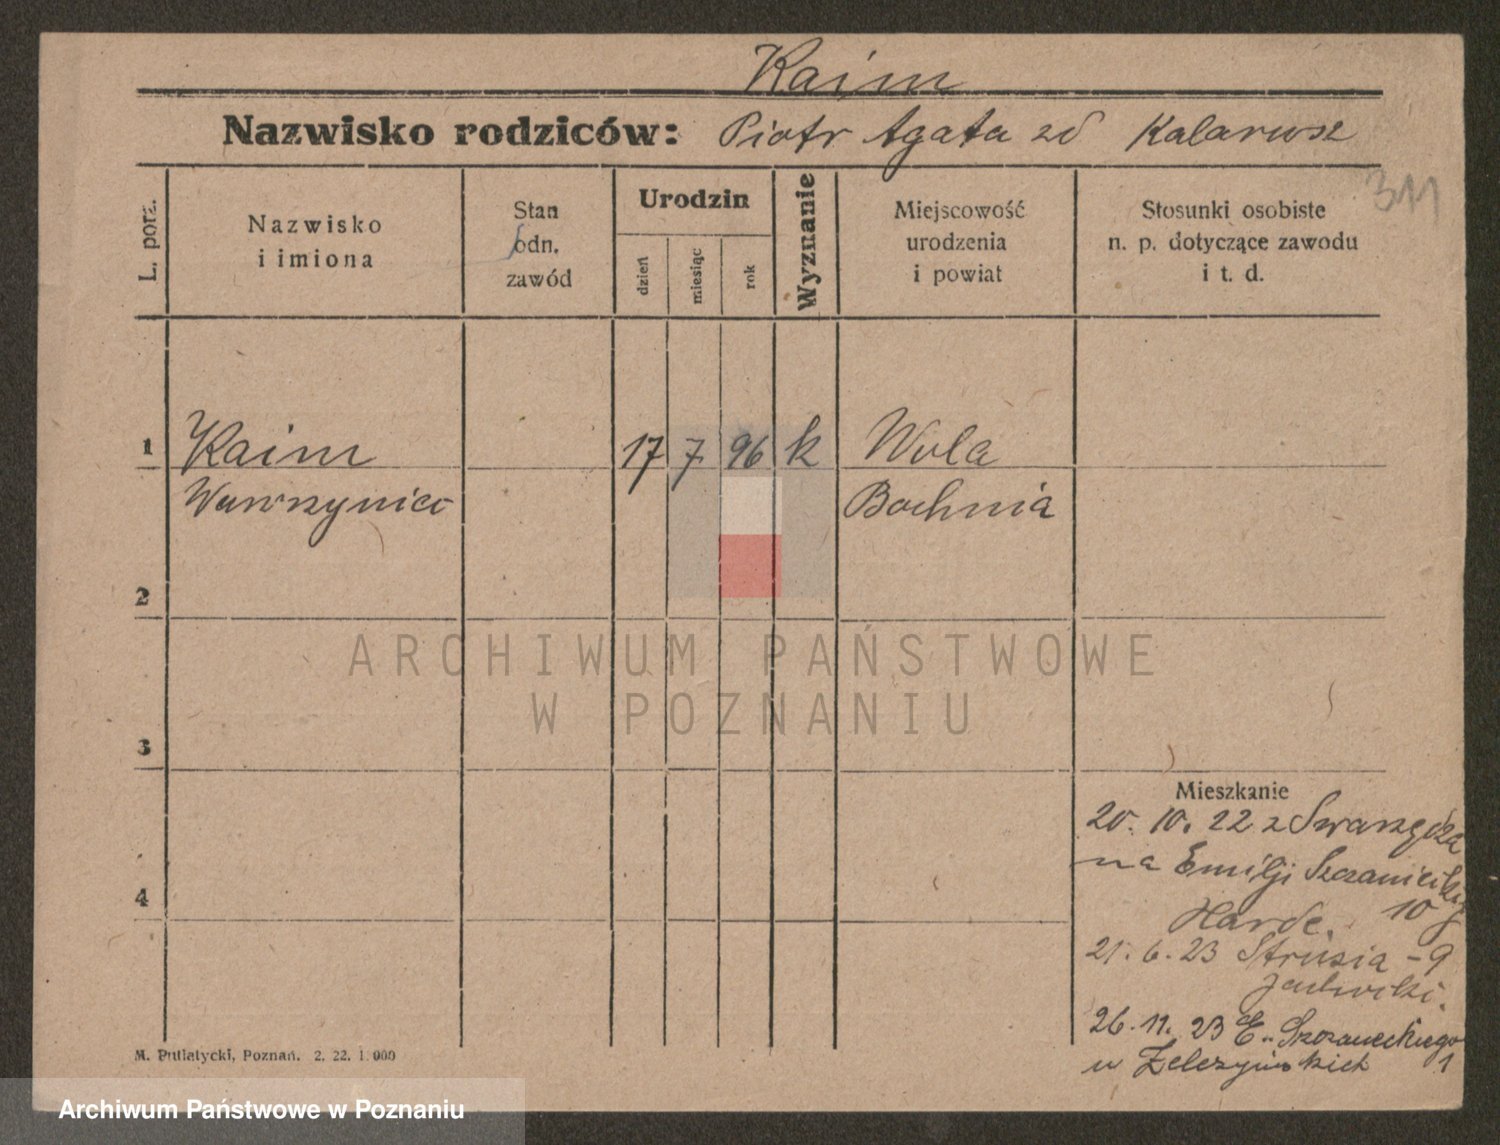 Kaim
Nazwisko rodziców: Piotr Agata zd Kalarusz
311
L. porz.
Nazwisko
i imiona
Stan
odn.
zawód
Urodzin
dzień
miesiąc
rok
Wyznanie
Miejscowość
urodzenia
i powiat
Stosunki osobiste
n. p. dotyczące zawodu
i t. d.
1 Kaim 17 7 96 k Wola
Wawrzyniec Bochnia
2
3
4
Mieszkanie
20. 10. 22 z Swarzędza
na Emilji Szczanieckiej
10
21. 6. 23 Strusia - 9
26. 11. 23 E. Szczanieckiego
u 1
M. Putiatycki, Poznań. 2. 22. 1.000
ARCHIWUM PAŃSTWOWE
W POZNANIU
Archiwum Państwowe w Poznaniu